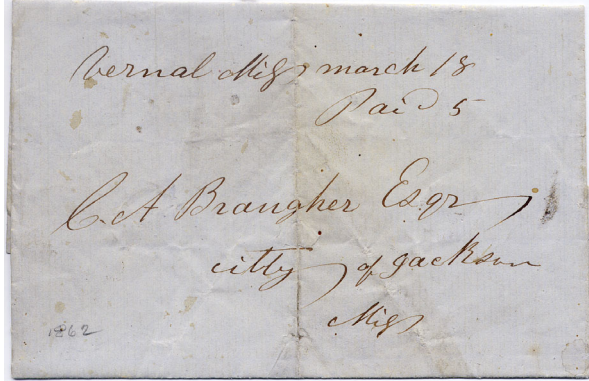 Vernal Miſs march 18
Paid 5
C. A Brougher Esqr
citty of Jackson
Miſs
1862